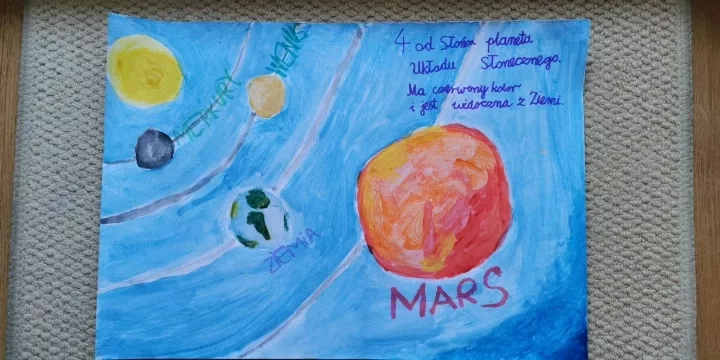 4. od Słońca planeta
Układu Słonecznego.
Ma czerwony kolor
i jest widoczna z Ziemi.
MERKURY
WENUS
ZIEMIA
MARS